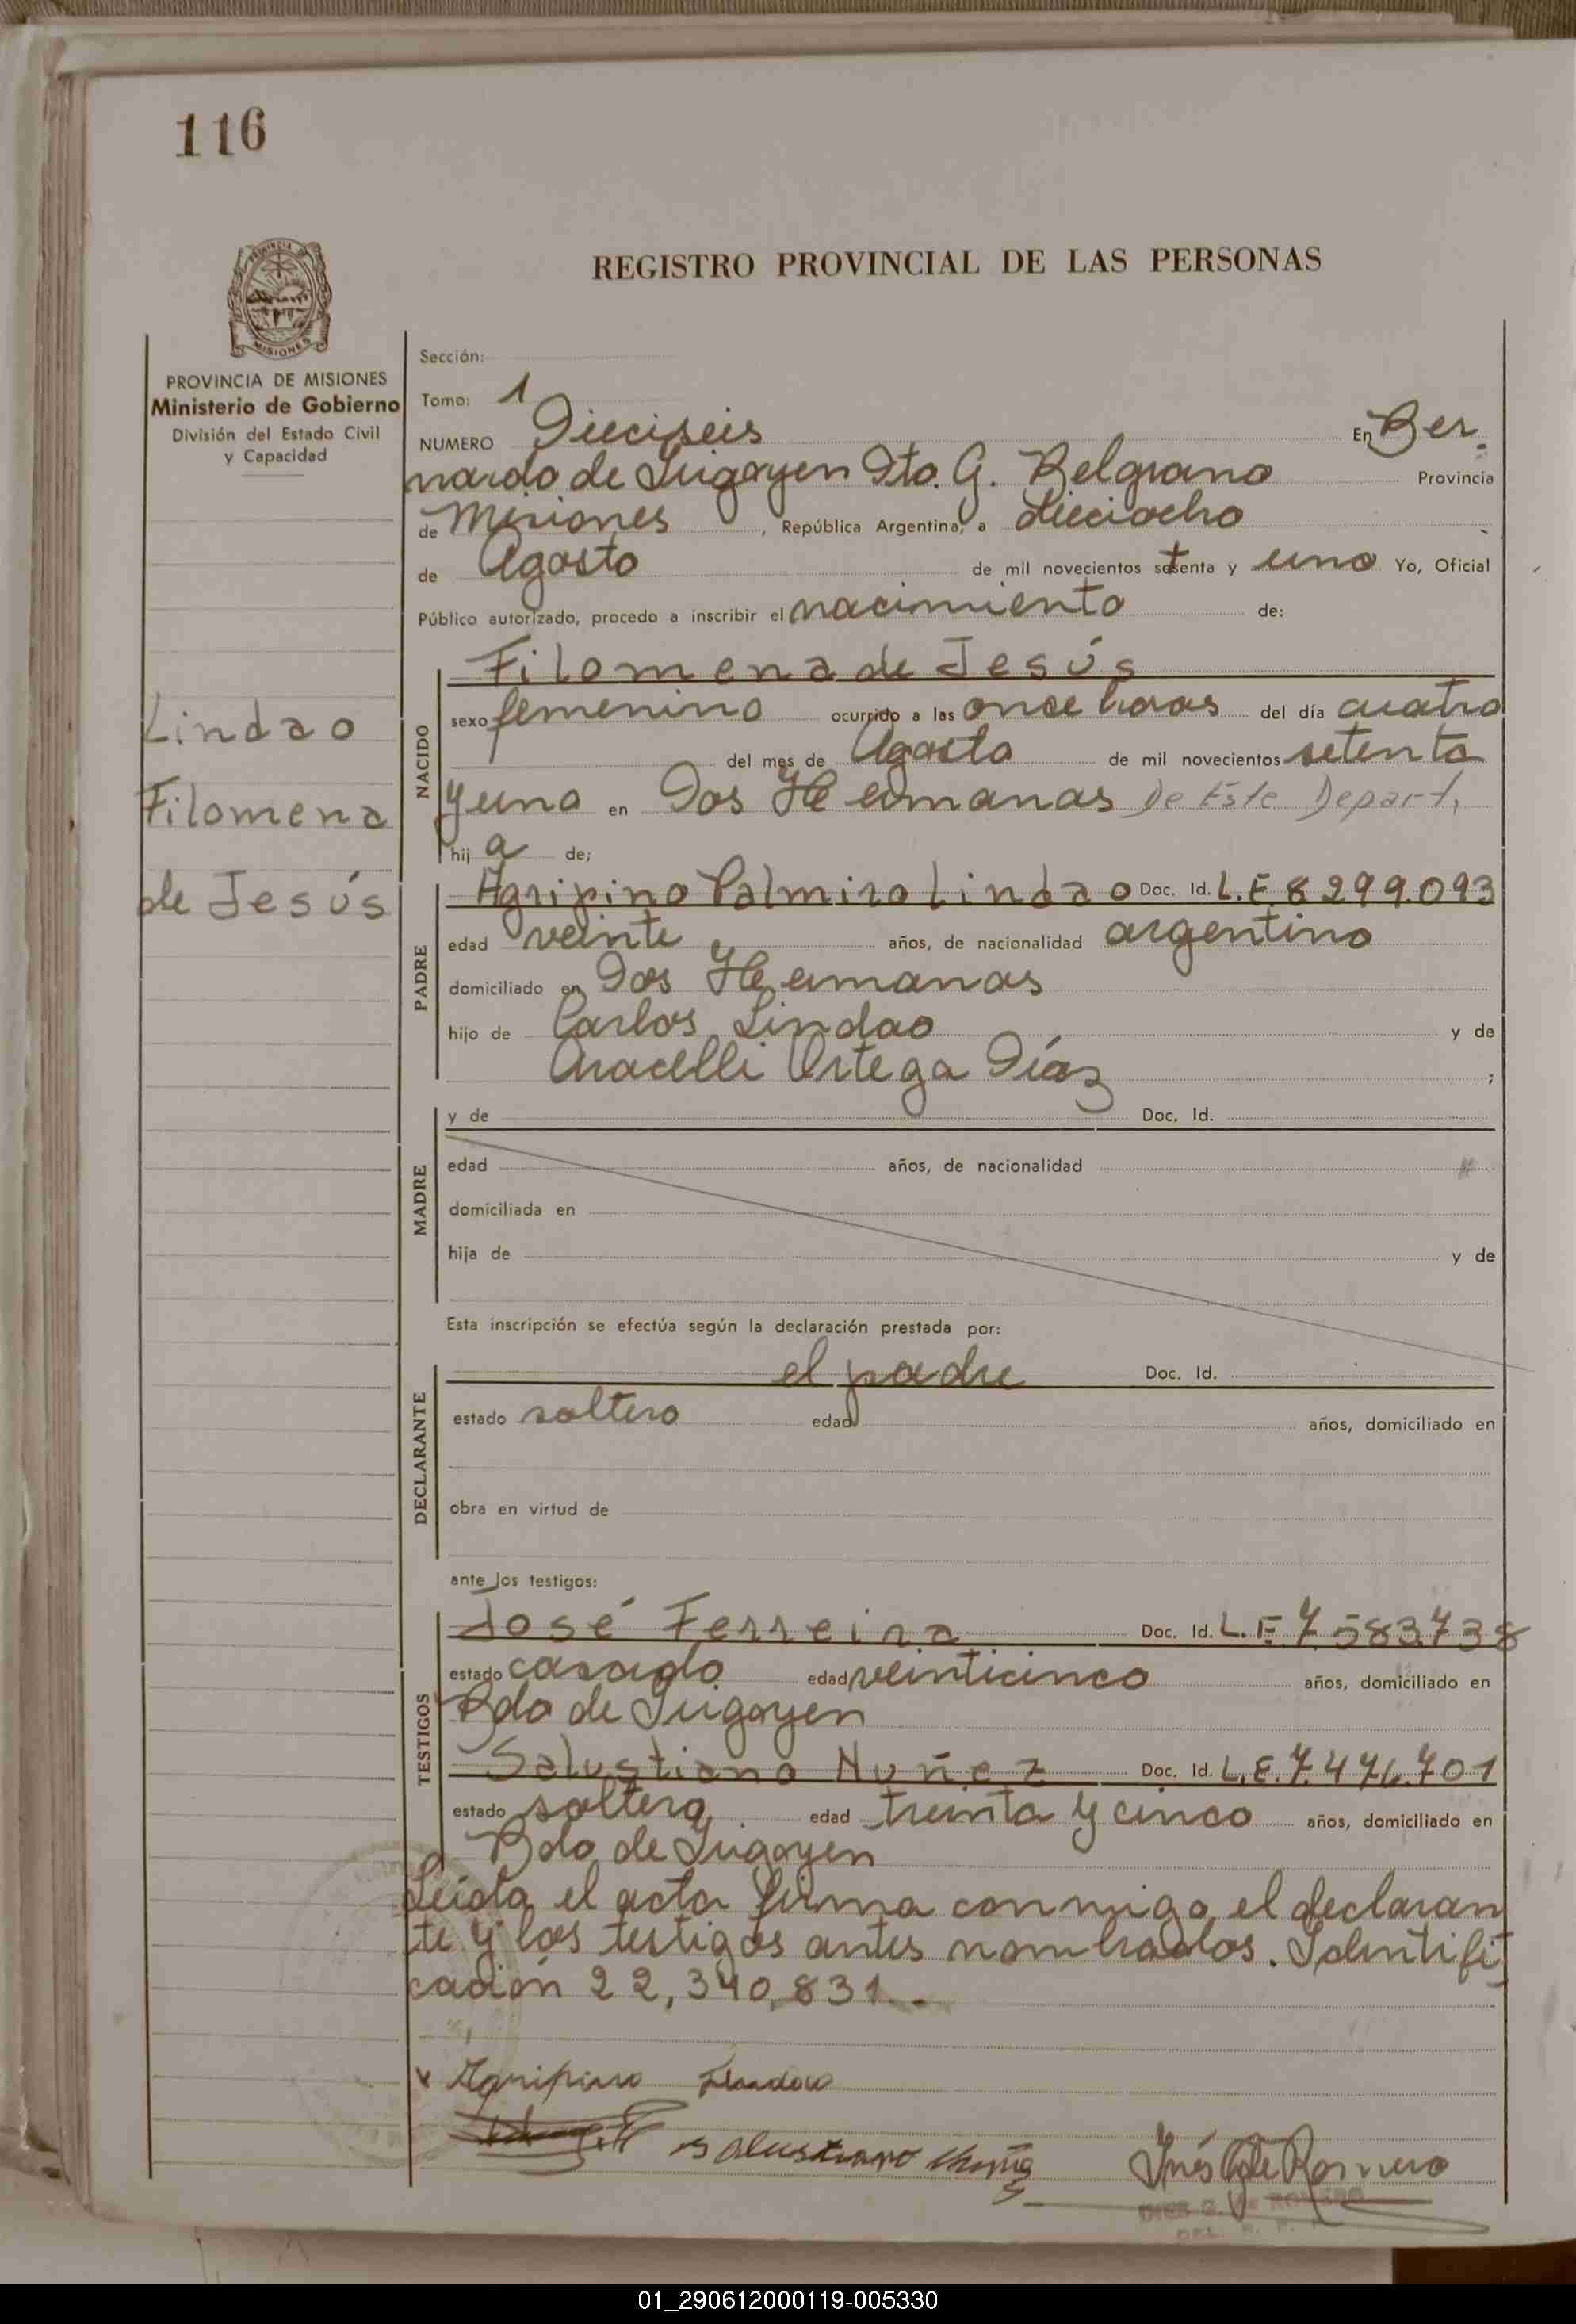 116
REGISTRO PROVINCIAL DE LAS PERSONAS
PROVINCIA DE MISIONES
Ministerio de Gobierno
División del Estado Civil
y Capacidad
Lindao
Filomena
de Jesús
Sección:
Tomo: 1
NUMERO Dieciseis En Ber-
nardo de Irigoyen Dto. G. Belgrano Provincia
de Misiones, República Argentina, a dieciocho
de Agosto de mil novecientos setenta y uno Yo, Oficial
Público autorizado, procedo a inscribir el nacimiento de:
NACIDO
Filomena de Jesús
sexo femenino ocurrido a las once horas del día cuatro
del mes de Agosto de mil novecientos setenta
y uno en Dos Hermanas De Este Depart.
hij a de;
PADRE
Agripino Palmiro Lindao Doc. Id. L.E. 8299.093
edad veinte años, de nacionalidad argentino
domiciliado en Dos Hermanas
hijo de Carlos Lindao y de
Aracelli Ortega Díaz ;
MADRE
y de Doc. Id.
edad años, de nacionalidad
domiciliada en
hija de y de
Esta inscripción se efectúa según la declaración prestada por:
DECLARANTE
el padre Doc. Id.
estado soltero edad años, domiciliado en
obra en virtud de
ante los testigos:
TESTIGOS
José Ferreira Doc. Id. L.E. 7.583.738
estado casado edad veinticinco años, domiciliado en
Bdo de Irigoyen
Salustiano Nuñez Doc. Id. L.E. 7.476.701
estado soltero edad treinta y cinco años, domiciliado en
Bdo de Irigoyen
Leída el acta firma conmigo el declaran
te y los testigos antes nombrados. Identifi
cación 22,340,831.-
x Agripino Lindao
Salustiano Nuñez
Inés G de Romero
INES G. V. de ROMERO
01_290612000119-005330